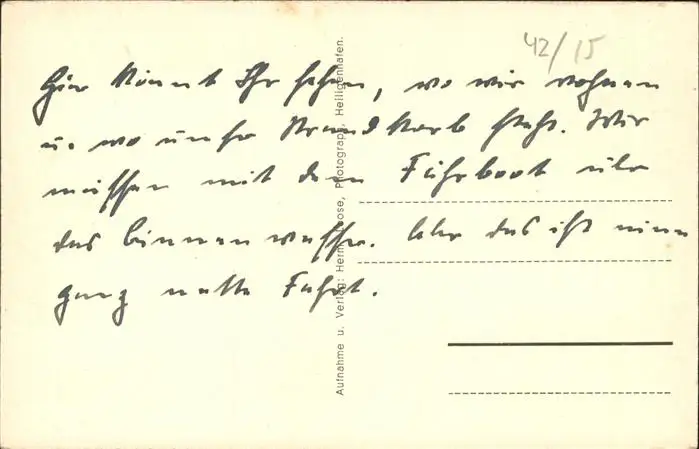 42/15
Hier könnt Ihr sehen, wo wir wohnen
u. wo unser Strandkorb steht. Wir
müssen mit dem Fährboot über
das Binnenwasser. Aber das ist eine
ganz nette Fahrt.
Aufnahme u. Verlag: Herm. oose, Photograph, Heiligenhafen.